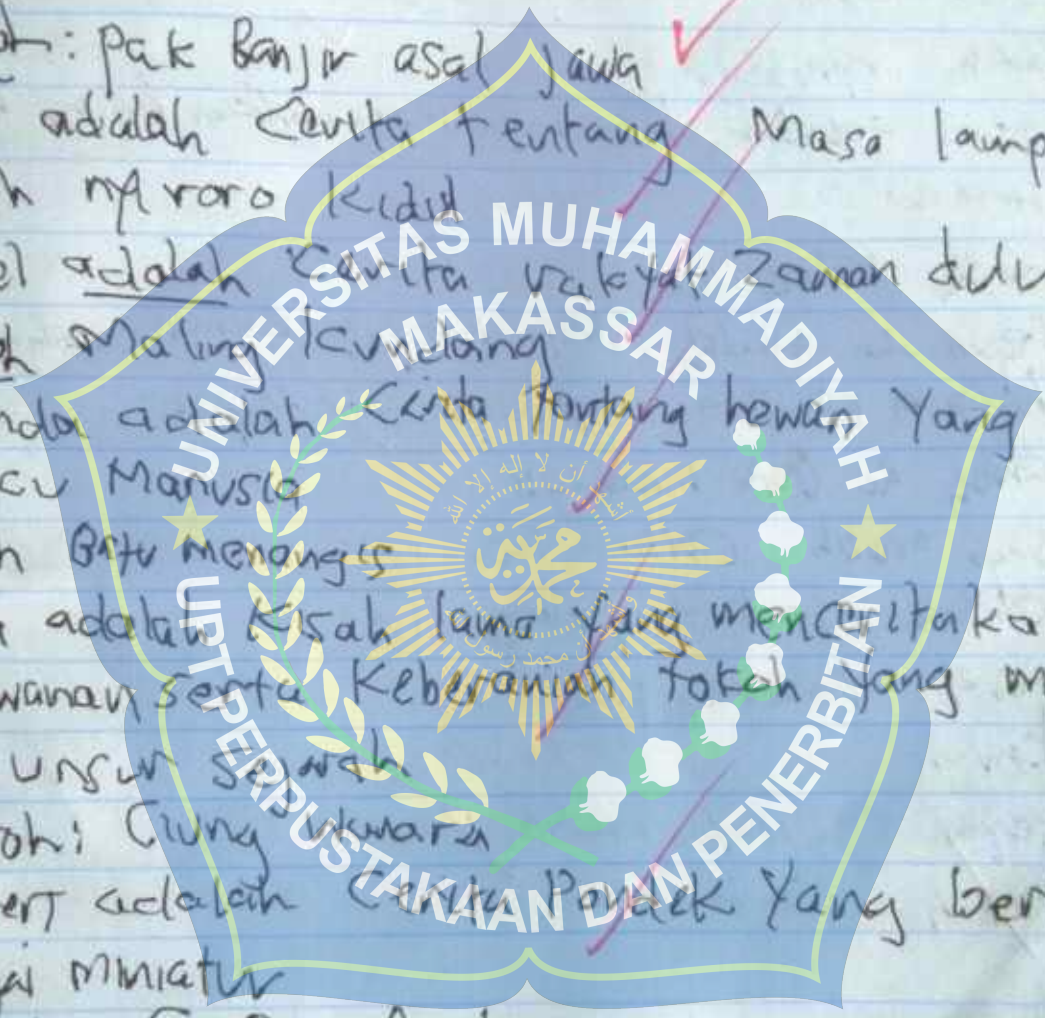 oh: Pak Banjir asal Jawa
adalah Cerita tentang Masa lamp
h nyi roro kidul
el adalah Cerita rakyat Zaman dulu
oh Maling Kundang
nda adalah Cerita tentang hewan Yang
cu Manusia
h Batu menangis
a adalah Kisah lama Yang menceritaka
wanan serta Keberanian tokoh Yang m
unsur sejarah
oh: Ciung Wanara
ert adalah Cerita Pendek Yang ber
ai miniatur
UNIVERSITAS MUHAMMADIYAH
MAKASSAR
أشهد أن لا إله إلا الله
محمد
وأشهد أن محمد رسول الله
UPT PERPUSTAKAAN DAN PENERBITAN